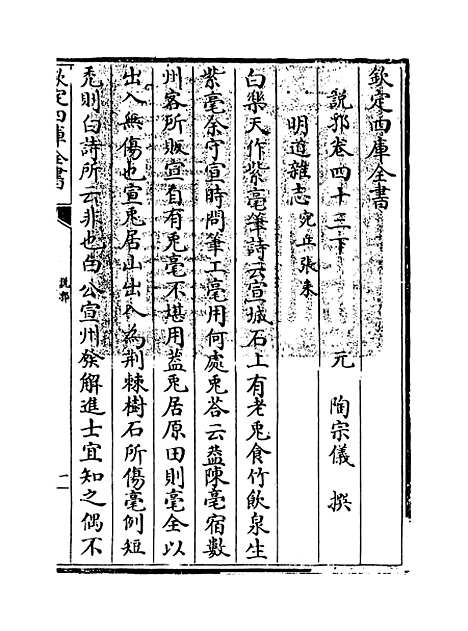 欽定四庫全書
說郛卷四十三下
元 陶宗儀 撰
明道雜志 宛丘張耒
白樂天作紫毫筆詩云宣城石上有老兎食竹飲泉生
紫毫余守宣時問筆工毫用何處兎荅云葢陳亳宿數
州客所販宣自有兎毫不堪用葢兎居原田則毫全以
出入無傷也宣兎居山出入為荆棘樹石所傷毫例短
禿則白詩所云非也白公宣州發解進士宜知之偶不
欽定四庫全書
說郛
一